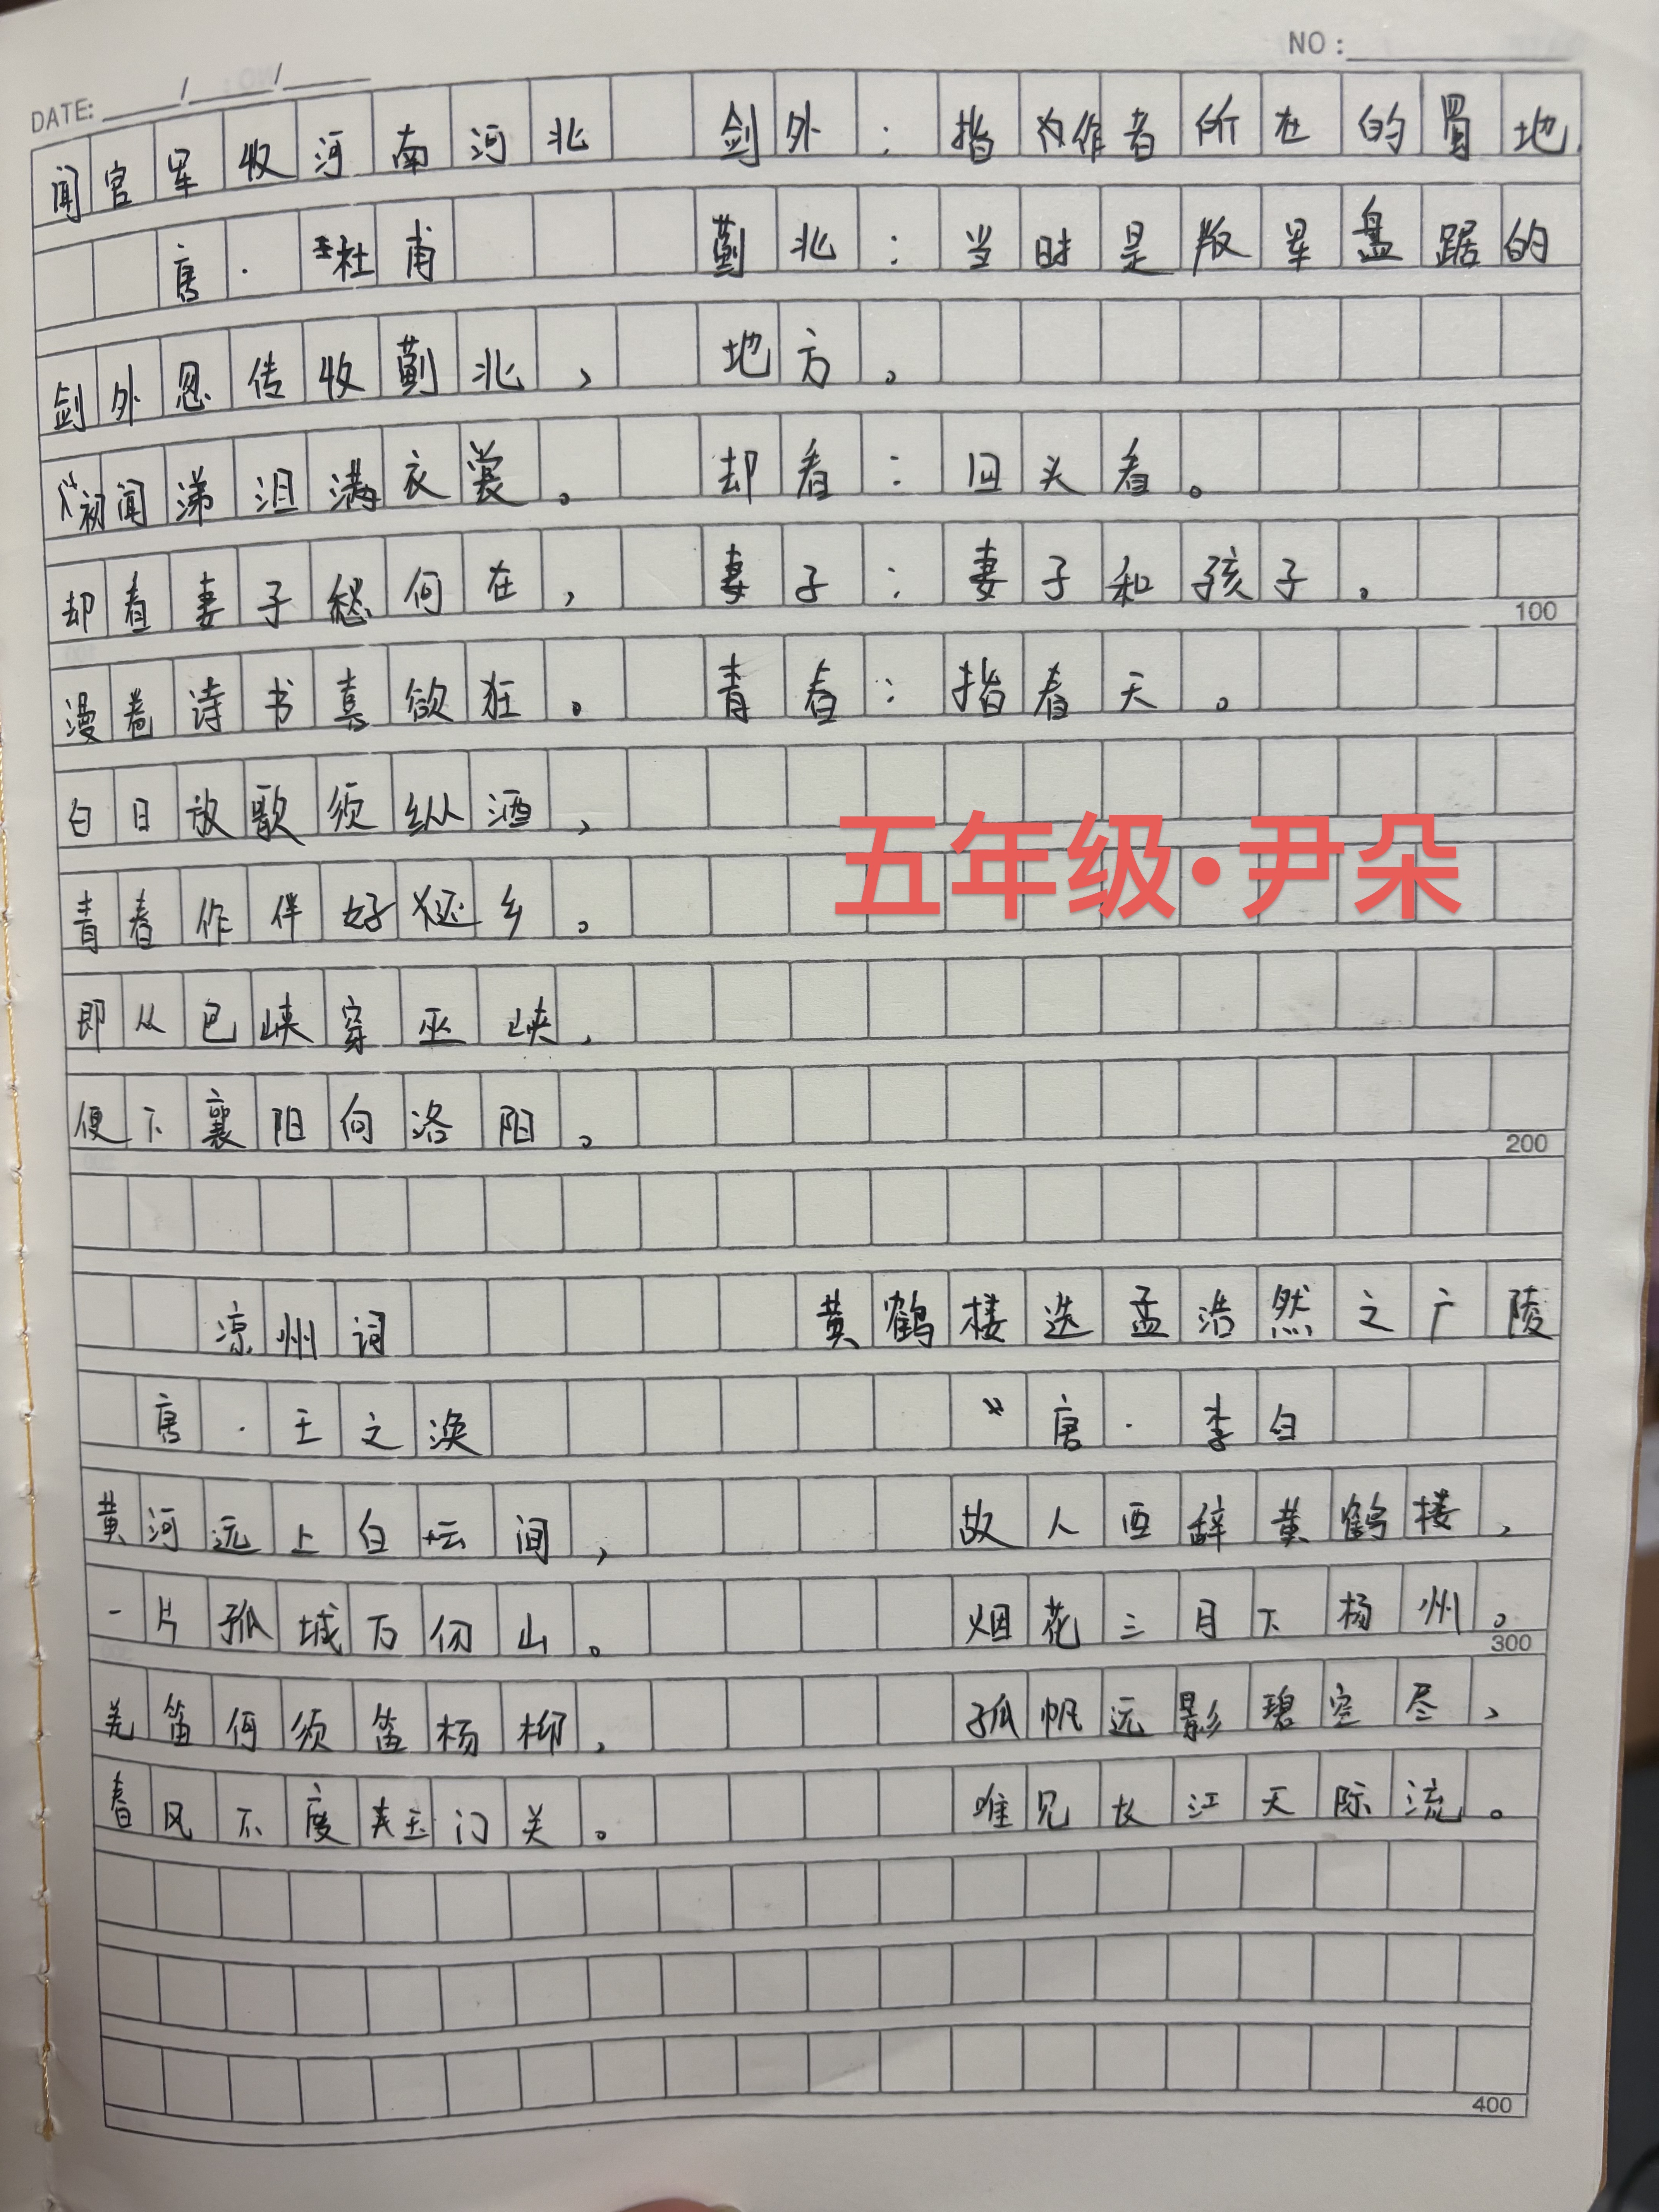 NO：
DATE: / /
闻官军收河南河北 剑外：指作者所在的蜀地.
唐·杜甫 蓟北：当时是叛军盘踞的
剑外忽传收蓟北， 地方。
初闻涕泪满衣裳。 却看：回头看。
却看妻子愁何在， 妻子：妻子和孩子。
100
漫卷诗书喜欲狂。 青春：指春天。
白日放歌须纵酒，
五年级·尹朵
青春作伴好还乡。
即从巴峡穿巫峡，
便下襄阳向洛阳。
200
凉州词 黄鹤楼送孟浩然之广陵
唐·王之涣 唐·李白
黄河远上白云间， 故人西辞黄鹤楼，
一片孤城万仞山。 烟花三月下杨州。
300
羌笛何须笛杨柳， 孤帆远影碧空尽，
春风不度玉门关。 唯见长江天际流。
400